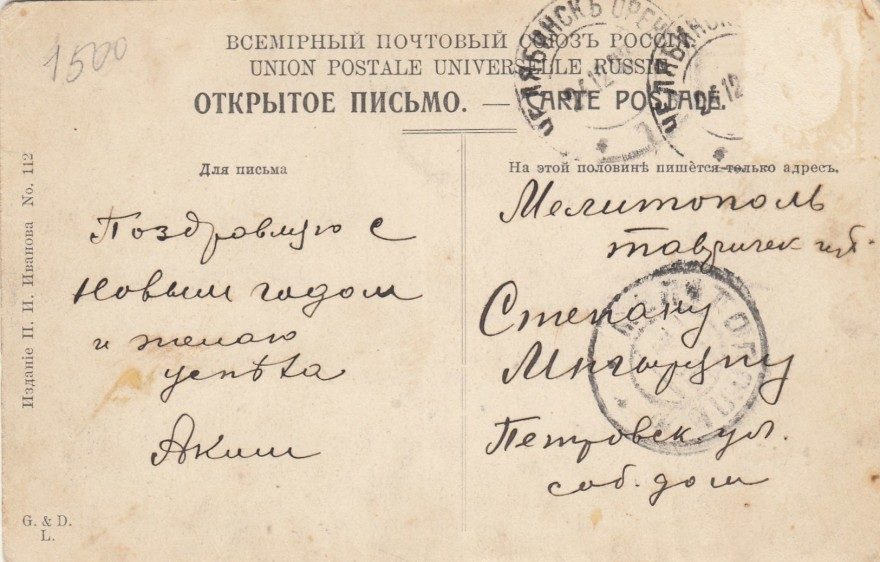 1500
ВСЕМІРНЫЙ ПОЧТОВЫЙ СОЮЗЪ РОССІЯ
UNION POSTALE UNIVERSELLE RUSSIE
ОТКРЫТОЕ ПИСЬМО. — CARTE POSTALE.
ЧЕЛЯБИНСКЪ
ЧЕЛЯБИНСК
Для письма
Поздравляю с
Новым годом
и желаю
успѣха
Аким
На этой половинѣ пишется только адресъ.
Мелитополь
Таврическ губ.
Степану
Петровск ул.
соб. дом
МЕЛИТОПОЛЬ
Изданіе П. И. Иванова No. 112
G. & D.
L.